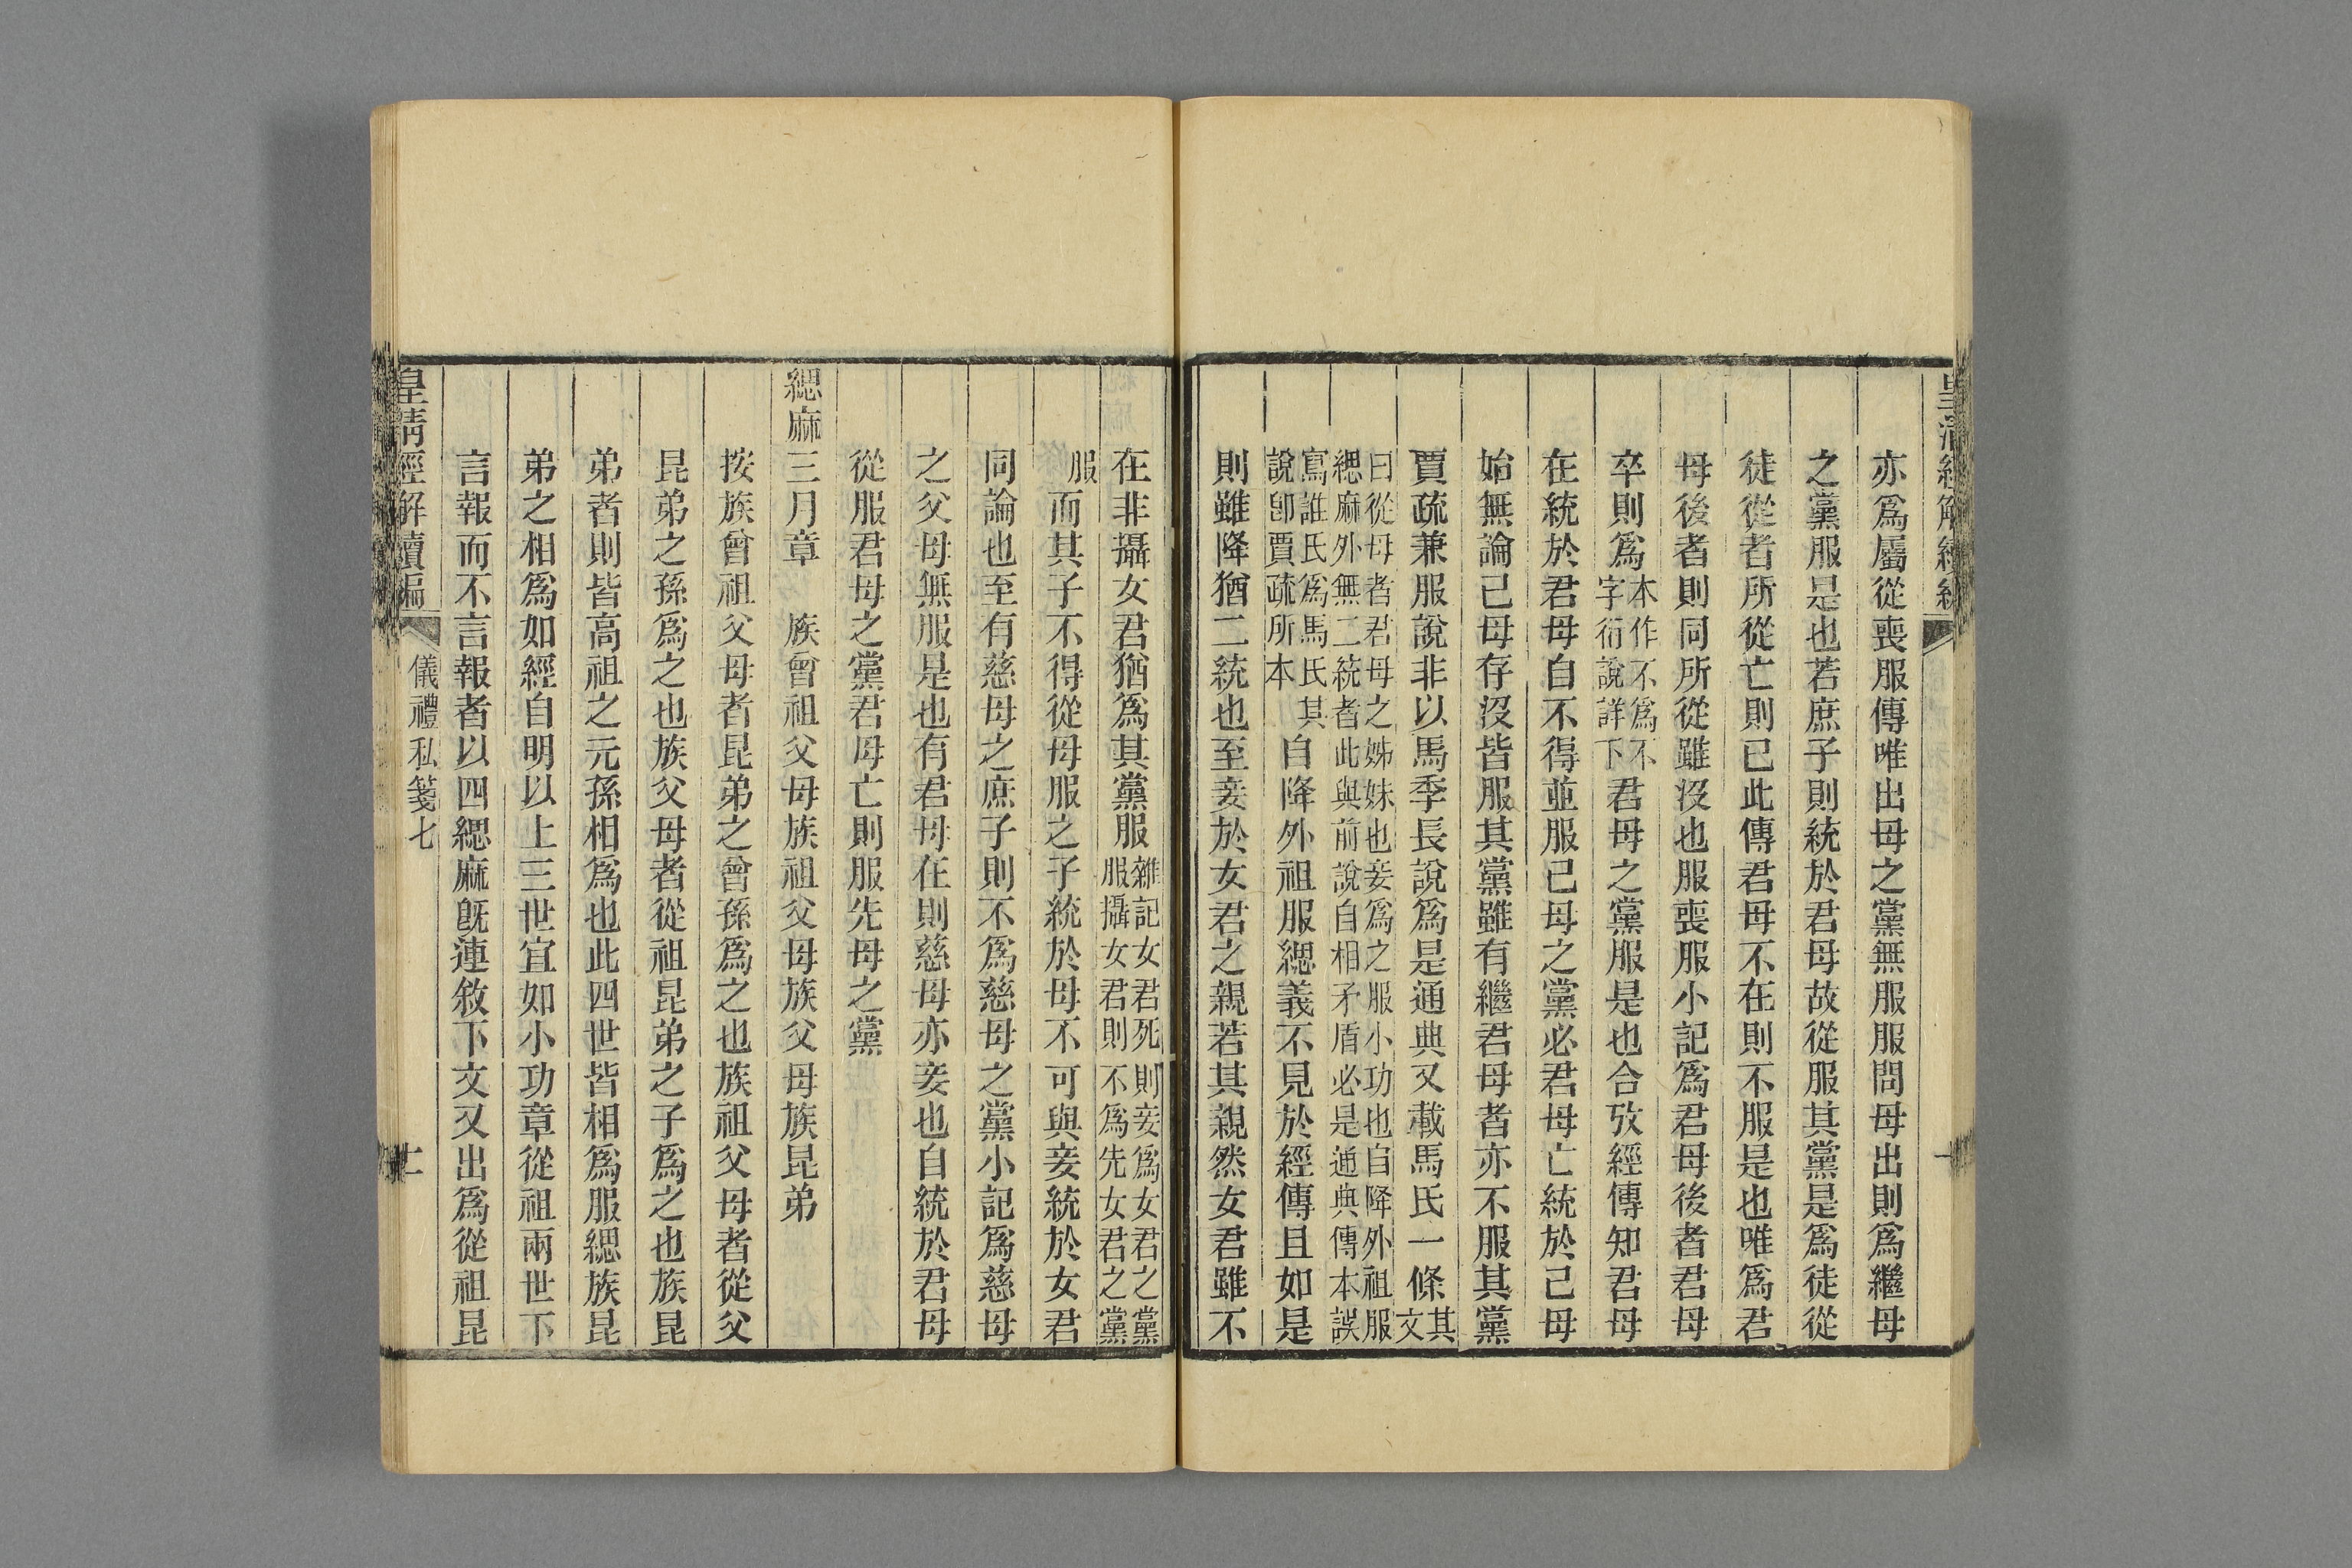 亦爲屬從喪服傳唯出母之黨無服服問母出則爲繼母
之黨服是也若庶子則統於君母故從服其黨是爲徒從
徒從者所從亡則已此傳君母不在則不服是也唯爲君
母後者則同所從雖沒也服喪服小記爲君母後者君母
卒則爲本作不爲不字衍說詳下君母之黨服是也合攷經傳知君母
在統於君母自不得並服己母之黨必君母亡統於己母
始無論己母存沒皆服其黨雖有繼君母者亦不服其黨
賈疏兼服說非以馬季長說爲是通典又載馬氏一條其文
曰從母者君母之姊妹也妾爲之服小功也自降外祖服
緦麻外無二統者此與前說自相矛盾必是通典傳本誤
寫誰氏爲馬氏其說卽賈疏所本自降外祖服緦義不見於經傳且如是
則雖降猶二統也至妾於女君之親若其親然女君雖不
在非攝女君猶爲其黨服雜記女君死則妾爲女君之黨服攝女君則不爲先女君之黨
服而其子不得從母服之子統於母不可與妾統於女君
同論也至有慈母之庶子則不爲慈母之黨小記爲慈母
之父母無服是也有君母在則慈母亦妾也自統於君母
從服君母之黨君母亡則服先母之黨
緦麻三月章 族曾祖父母族祖父母族父母族昆弟
按族曾祖父母者昆弟之曾孫爲之也族祖父母者從父
昆弟之孫爲之也族父母者從祖昆弟之子爲之也族昆
弟者則皆高祖之元孫相爲也此四世皆相爲服緦族昆
弟之相爲如經自明以上三世宜如小功章從祖兩世下
言報而不言報者以四緦麻既連敘下文又出爲從祖昆
皇清經解續編 儀禮私箋七